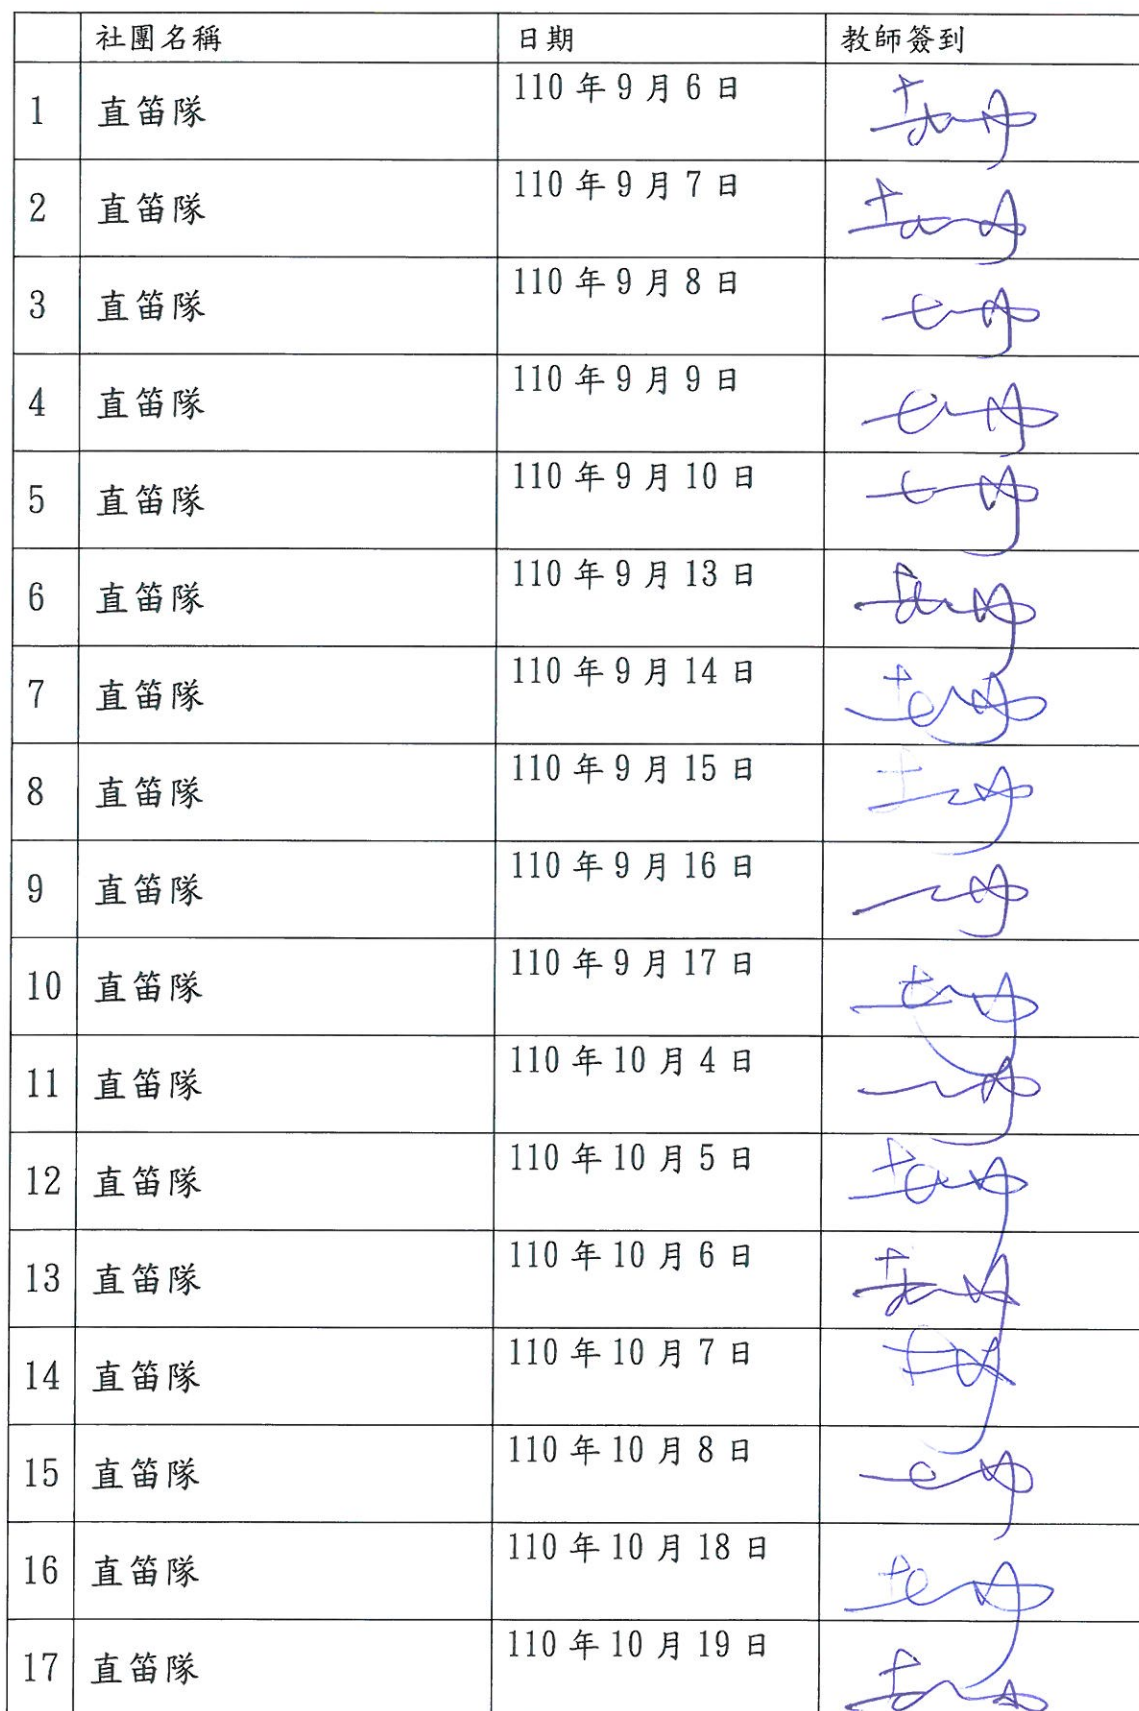 社團名稱 日期 教師簽到
1 直笛隊 110年9月6日
2 直笛隊 110年9月7日
3 直笛隊 110年9月8日
4 直笛隊 110年9月9日
5 直笛隊 110年9月10日
6 直笛隊 110年9月13日
7 直笛隊 110年9月14日
8 直笛隊 110年9月15日
9 直笛隊 110年9月16日
10 直笛隊 110年9月17日
11 直笛隊 110年10月4日
12 直笛隊 110年10月5日
13 直笛隊 110年10月6日
14 直笛隊 110年10月7日
15 直笛隊 110年10月8日
16 直笛隊 110年10月18日
17 直笛隊 110年10月19日